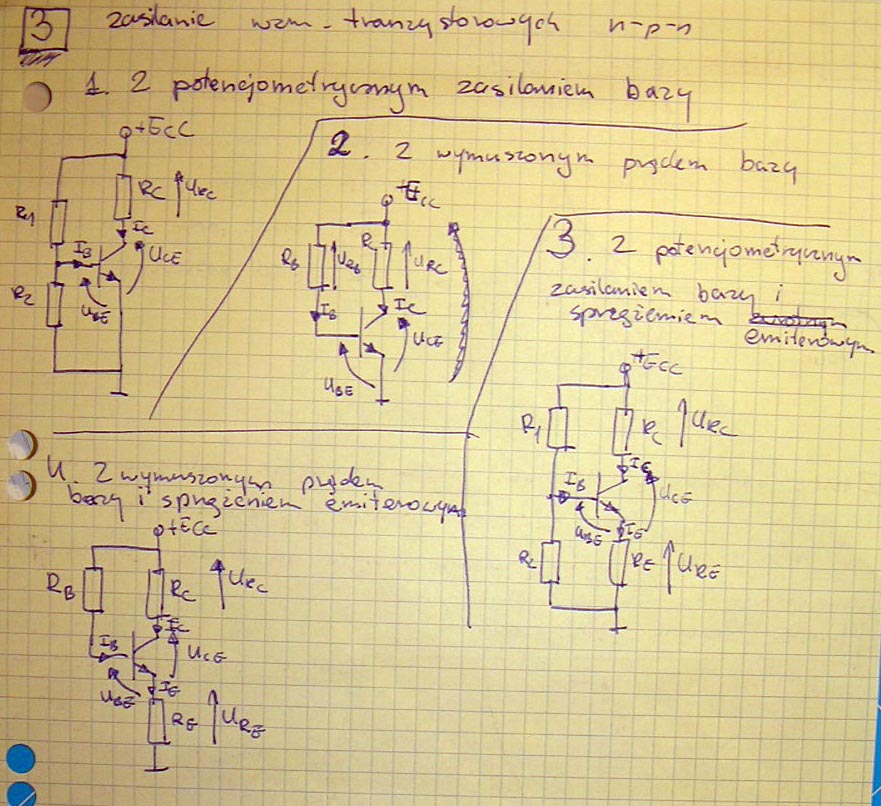 3 zasilanie wzm. tranzystorowych n-p-n
1. Z potencjometrycznym zasilaniem bazy
+ECC
R1
RC
URC
IC
IB
UCE
R2
UBE
2. Z wymuszonym prądem bazy
+ECC
RB
URB
RC
URC
IB
IC
UCE
UBE
3. Z potencjometrycznym
zasilaniem bazy i
sprzężeniem
emiterowym
+ECC
R1
RC
URC
IC
IB
UCE
UBE
IE
R2
RE
URE
4. Z wymuszonym prądem
bazy i sprzężeniem emiterowym
+ECC
RB
RC
URC
IC
IB
UCE
UBE
IE
RE
URE